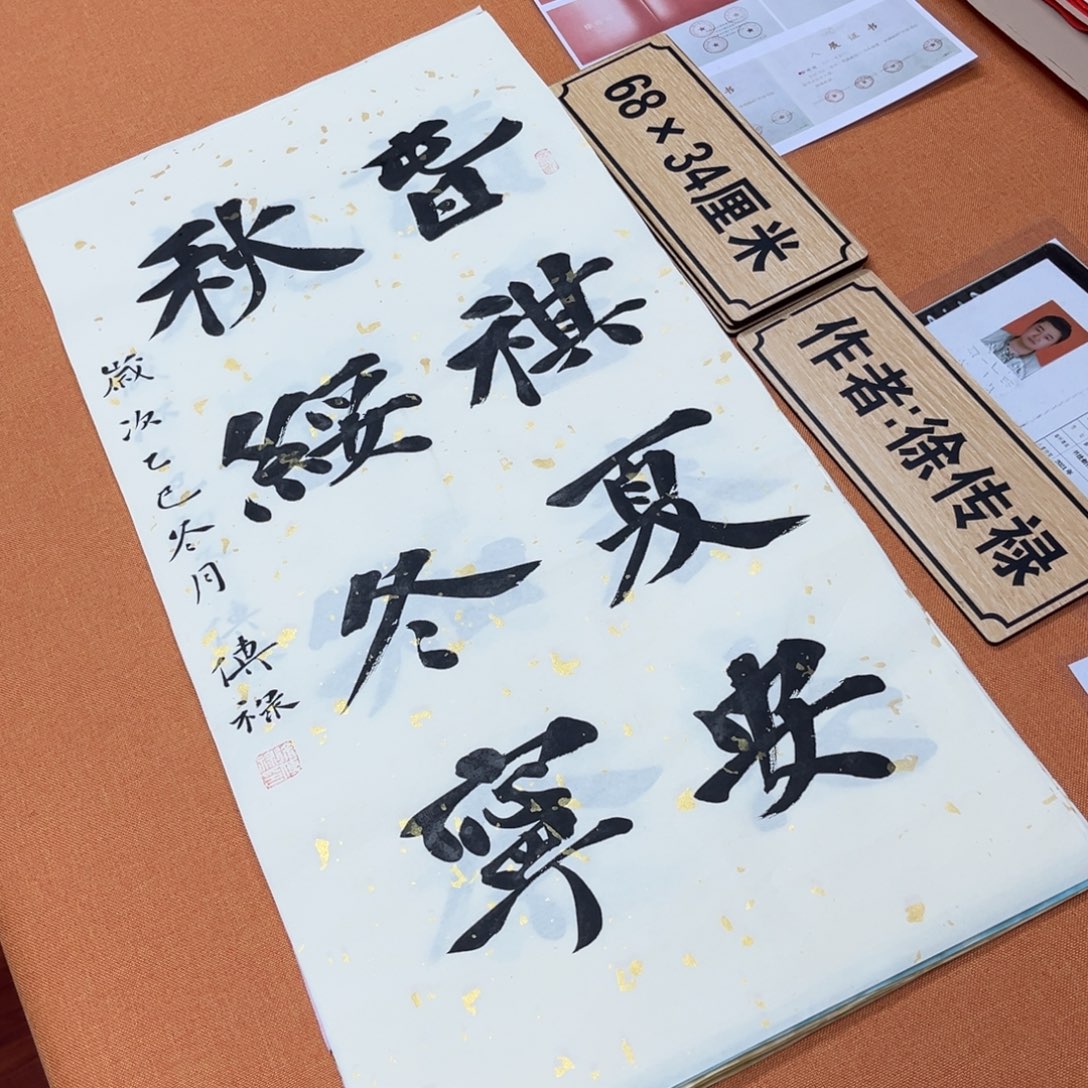 春祺夏安
秋綏冬
歲次乙巳冬月
傳禄
68×34厘米
作者:徐传禄
入展证书